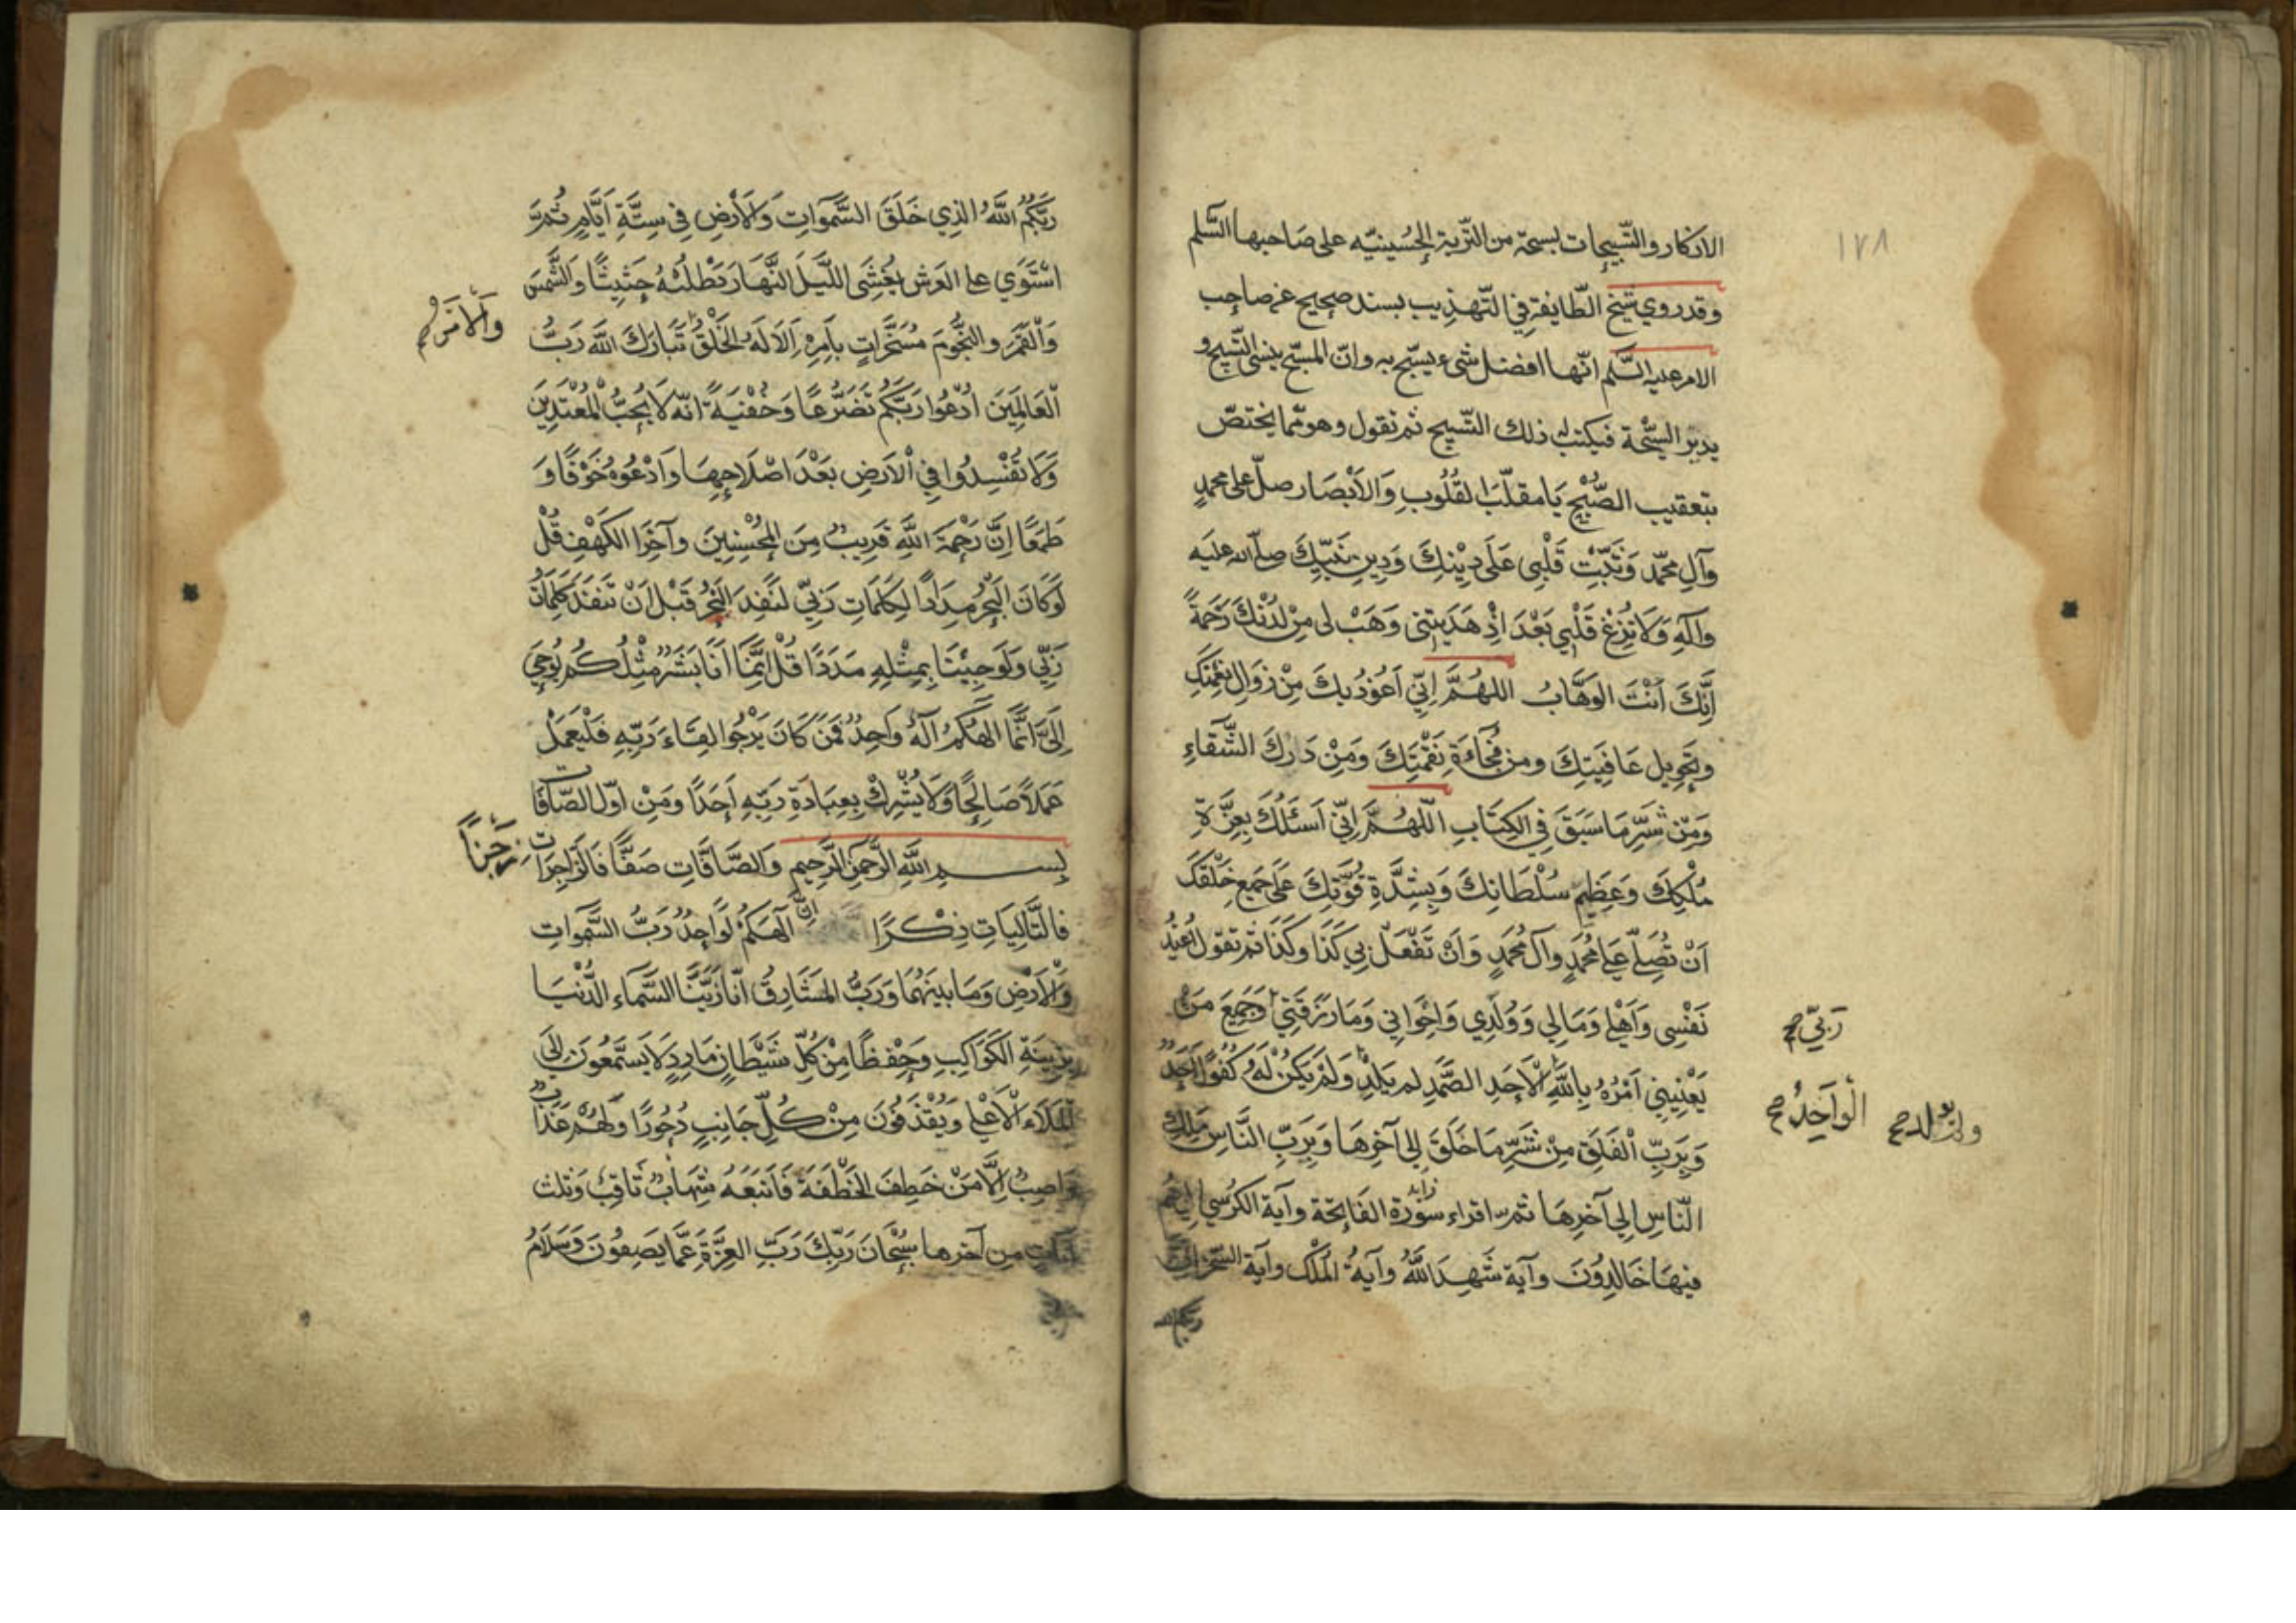 ١٧٨
الاذكار والتّسبيحات بسبحة من التّربة الحُسينيّه على صَاحبها السَّلم
وقد روي شيخ الطّايفة في التّهذيب بسند صحيح عن صاحب
الامر عليه السَّلم انّها افضل شىء يسبّح به وانّ المسبّح ينسى التّسبيح و
يدير السبّحة فيكتب له ذلك التّسبيح ثم تقول وهو ممّا يختصّ
بتعقيب الصُّبْحِ يَا مقلّبَ القُلُوبِ وَالاَبْصَار صلّ على محمدٍ
وآلِ محمّد وَثَبِّتْ قَلْبِى عَلَى دِيْنِكَ وَدِينِ نَبيِّكَ صلّى الله عليه
وآلهِ وَلَا تُزِغْ قَلْبِي بَعْدَ اِذْ هَدَيتَنى وَهَبْ لى مِنْ لَدُنْكَ رَحْمَةً
اِنَّكَ اَنْتَ الوَهَّابُ اللهُمَّ اِنّي اَعُوذُ بِكَ مِنْ زَوَالِ نِعْمَتِكَ
وتَحْوِيل عَافِيَتِكَ ومن فُجَآءَةِ نَقْمَتِكَ وَمِنْ دَرَكَ الشَّقَاءِ
وَمِنْ شَرِّ مَا سَبَقَ فِي الكِتَابِ اللّهُمَّ اِنّي اَسْئَلُكَ بِعِزَّةِ
مُلْكِكَ وَعَظِيْمِ سُلْطَانِكَ وَبِشِدَّةِ قُوَّتِكَ عَلَى جَمِيعِ خَلْقِكَ
اَنْ تُصَلِّيَ عَلى مُحَمَّدٍ وآلِ مُحَمَّدٍ وَاَنْ تَفْعَلَ بِي كَذَا وكَذَا ثم تقول اُعِيْذُ
نَفْسِى وَاَهْلِى وَمَالِي وَوُلْدِي وَاِخْوَانِي وَمَا رَزَقَنِي وَجَمِيعَ مَنْ
رَبّي صح
يَعْنِينِي اَمْرُهُ بِاللهِ الْاَحَدِ الصَّمَدِ لم يَلِدْ وَلَمْ يَكُنْ لَهُ كُفُوًا اَحَدٌ
الْوَاحِدُ صح
ولم يولد صح
وَبِرَبِّ الْفَلَقِ مِنْ شَرِّ مَا خَلَقَ اِلى آخِرِهَا وَبِرَبِّ النَّاسِ مَلِكِ
النّاسِ اِلى آخرِهَا ثم اقراء سُوْرة الفَاتِحَة وآية الكرسي اِلى هُم
زايد
فِيهَا خَالِدُوْنَ وآية شَهِدَ اللهُ وآيةُ المُلْك وآية السّخرة اِنّ
ربكم
رَبَّكُمُ اللهُ الذِي خَلَقَ السَّمَوَاتِ وَالاَرْضِ فِي سِتَّةِ اَيَّامٍ ثُمَّ
اسْتَوَي على العَرْش يُغْشِي اللَّيْلَ النَّهَارَ يَطْلُبُهُ حَثِيثًا وَالشَّمْسَ
وَالْقَمَرَ والنُّجُومَ مُسَخَّرَاتٍ بِاَمْرِهِ اَلَا لَهُ الخَلْقُ تَبَارَكَ اللهُ رَبُّ
وَالْاَمْرُ صح
الْعَالَمِيْنَ اُدْعُوا رَبَّكُم تَضَرُّعًا وَخُفْيَةً اِنّه لَا يُحِبُّ الْمُعْتَدِيْنَ
وَلَا تُفْسِدُوا فِي الْاَرْضِ بَعْدَ اصْلَاحِهَا وَادْعُوهُ خَوْفًا وَ
طَمَعًا اِنَّ رَحْمَةَ اللهِ قَرِيبٌ مِنَ المُحْسِنِيْنَ وآخِرَ الكَهْفِ قُلْ
لَوْ كَانَ الْبَحْرُ مِدَادًا لِكَلِمَاتِ رَبِّي لَنَفِدَ البَحْرُ قَبْلَ اَنْ تَنْفَدَ كَلِمَاتُ
رَبِّي وَلَو جِئْنَا بِمِثْلِهِ مَدَدًا قُلْ اِنَّمَا اَنَا بَشَرٌ مِثْلُكُمْ يُوحَي
اِلَيَّ اَنَّمَا اِلَهُكُمُ اِلَهٌ وَاحِدٌ فَمَنْ كَانَ يَرْجُوا لِقَاءَ رَبِّهِ فَلْيَعْمَلْ
عَمَلًا صَالِحًا وَلَا يُشْرِكْ بِعِبَادَةِ رَبِّهِ اَحَدًا وَمِنْ اوّل الصَّافَات
بِسْمِ اللهِ الرَّحْمَنِ الرَّحِيمِ وَالصَّافَّاتِ صَفًّا فَالزَّاجِرَاتِ
زَجْرًا
فالتَّالِيَاتِ ذِكْرًا اِنَّ اِلَهَكُمْ لَوَاحِدٌ رَبُّ السَّمَوَاتِ
وَالْاَرْضِ وَمَا بَيْنَهُمَا وَرَبُّ المَشَارِقُ اِنَّا زَيَّنَّا السَّمَاءَ الدُّنْيَا
بِزِيْنَةِ الكَوَاكِبِ وَحِفْظًا مِنْ كُلِّ شَيْطَانٍ مَارِدٍ لَا يَسَّمَّعُونَ اِلَى
الْمَلَاءِ الْاَعْلَى وَيُقْذَفُونَ مِنْ كُلِّ جَانِبٍ دُحُورًا وَلَهُمْ عَذَابٌ
وَاصِبٌ اِلَّا مَنْ خَطِفَ الخَطْفَةَ فَاَتْبَعَهُ شِهَابٌ ثَاقِبٌ وَثلث
آيَات مِن آخرها سُبْحَانَ رَبِّكَ رَبِّ العِزَّةِ عَمَّا يَصِفُونَ وَسَلَامٌ